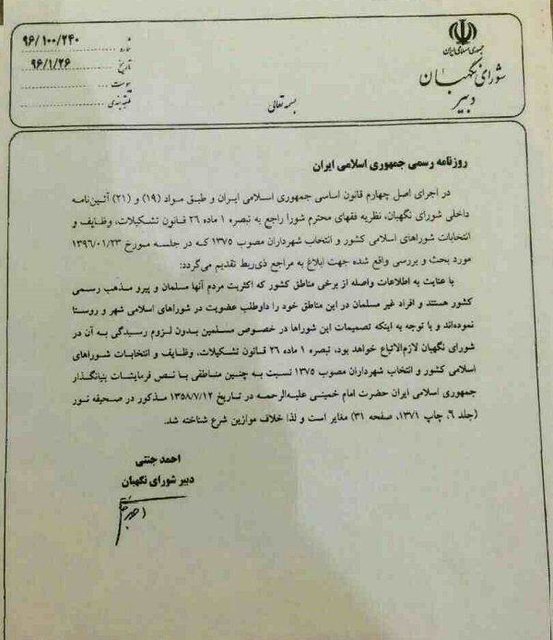 جمهوری اسلامی ایران
شورای نگهبان
دبیر
بسمه تعالی
شماره ۹۶/۱۰۰/۲۴۰
تاریخ ۹۶/۱/۲۶
پیوست
طبقه‌بندی
روزنامه رسمی جمهوری اسلامی ایران
در اجرای اصل چهارم قانون اساسی جمهوری اسلامی ایران و طبق مواد (۱۹) و (۲۱) آئین‌نامه
داخلی شورای نگهبان، نظریه فقهای محترم شورا راجع به تبصره ۱ ماده ۲۶ قانون تشکیلات، وظایف و
انتخابات شوراهای اسلامی کشور و انتخاب شهرداران مصوب ۱۳۷۵ که در جلسه مورخ ۱۳۹۶/۰۱/۲۳
مورد بحث و بررسی واقع شده جهت ابلاغ به مراجع ذی‌ربط تقدیم می‌گردد:
با عنایت به اطلاعات واصله از برخی مناطق کشور که اکثریت مردم آنها مسلمان و پیرو مذهب رسمی
کشور هستند و افراد غیر مسلمان در این مناطق خود را داوطلب عضویت در شوراهای اسلامی شهر و روستا
نموده‌اند و با توجه به اینکه تصمیمات این شوراها در خصوص مسلمین بدون لزوم رسیدگی به آن در
شورای نگهبان لازم‌الاتباع خواهد بود، تبصره ۱ ماده ۲۶ قانون تشکیلات، وظایف و انتخابات شوراهای
اسلامی کشور و انتخاب شهرداران مصوب ۱۳۷۵ نسبت به چنین مناطقی با نص فرمایشات بنیانگذار
جمهوری اسلامی ایران حضرت امام خمینی علیه‌الرحمه در تاریخ ۱۳۵۸/۷/۱۲ مذکور در صحیفه نور
(جلد ۶، چاپ ۱۳۷۱، صفحه ۳۱) مغایر است و لذا خلاف موازین شرع شناخته شد.
احمد جنتی
دبیر شورای نگهبان